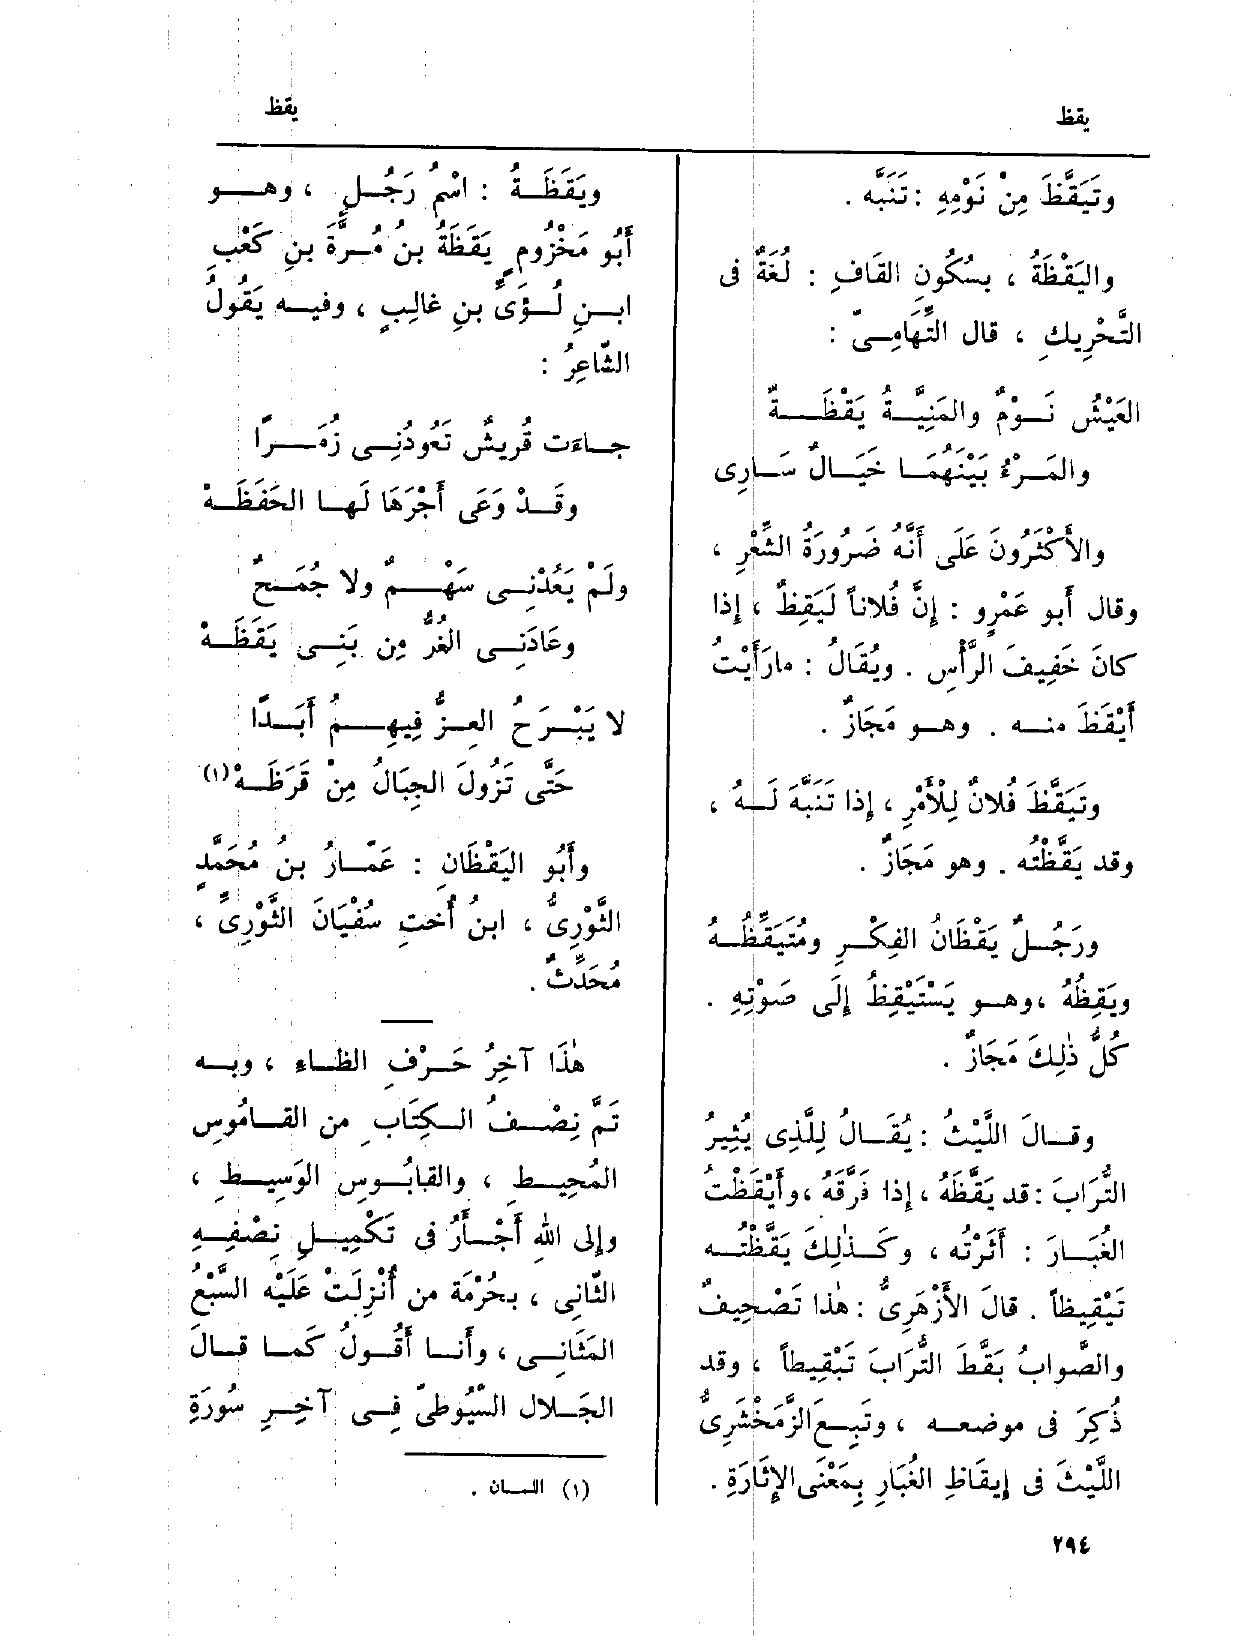 يقظ
يقظ
وتَيَقَّظَ مِنْ نَوْمِهِ : تَنَبَّه .
واليَقْظَةُ ، بسُكُونِ القَافِ : لُغَةٌ فى
التَّحْرِيكِ ، قال التِّهَامِىّ :
العَيْشُ نَوْمٌ والمَنِيَّةُ يَقْظَةٌ
والمَرْءُ بَيْنَهُمَا خَيَالٌ سَارِى
والأَكْثَرُونَ عَلَى أَنَّه ضَرُورَةُ الشِّعْرِ ،
وقال أَبو عَمْرٍو : إِنَّ فُلاناً لَيَقِظٌ ، إِذا
كانَ خَفِيفَ الرَّأْسِ . ويُقَالُ : مارَأَيْتُ
أَيْقَظَ منه . وهو مَجَازٌ .
وتَيَقَّظَ فُلانٌ لِلْأَمْرِ ، إِذا تَنَبَّهَ لَهُ ،
وقد يَقَّظْتُه . وهو مَجَازٌ .
ورَجُلٌ يَقْظَانُ الفِكْرِ ومُتَيَقِّظُهُ
ويَقِظُهُ ، وهو يَسْتَيْقِظُ إِلَى صَوْتِهِ .
كُلُّ ذٰلِكَ مَجَازٌ .
وقَالَ اللَّيْثُ : يُقَالُ لِلَّذِى يُثِيرُ
التُّرَابَ : قد يَقَّظَهُ ، إِذا فَرَّقَهُ ، وأَيْقَظْتُ
الغُبَارَ : أَثَرْتُه ، وكَذٰلِكَ يَقَّظْتُه
تَيْقِيظاً . قالَ الأَزْهَرِىُّ : هٰذا تَصْحِيفٌ
والصَّوابُ بَقَّطَ التُّرَابَ تَبْقِيطاً ، وقد
ذُكِرَ فى موضعه ، وتَبِعَ الزَّمَخْشَرِىُّ
اللَّيْثَ فى إِيقَاظِ الغُبَارِ بِمَعْنَى الإِثَارَةِ .
ويَقَظَةُ : اسْمُ رَجُلٍ ، وهو
أَبُو مَخْزُومٍ يَقَظَةُ بنُ مُرَّةَ بنِ كَعْبِ
ابنِ لُؤَىِّ بنِ غالِبٍ ، وفيه يَقُولُ
الشّاعِرُ :
جاءَت قُرَيشٌ تَعُودُنِى زُمَرًا
وقَدْ وَعَى أَجْرَهَا لَها الحَفَظَهْ
ولَمْ يَعُدْنِى سَهْمٌ ولا جُمَحٌ
وعَادَنِى الغُرُّ مِن بَنِى يَقَظَهْ
لا يَبْرَحُ العِزُّ فِيهِمُ أَبَدًا
حَتَّى تَزُولَ الجِبَالُ مِنْ قَرَظَهْ(١)
وأَبُو اليَقْظَانِ : عَمّارُ بنُ مُحَمَّدٍ
الثَّوْرِىُّ ، ابنُ أُختِ سُفْيَانَ الثَّوْرِىِّ ،
مُحَدِّثٌ .
هٰذَا آخِرُ حَرْفِ الظاءِ ، وبه
تَمَّ نِصْفُ الكِتَابِ من القامُوسِ
المُحِيطِ ، والقابُوسِ الوَسِيطِ ،
وإِلى اللهِ أَجْأَرُ فى تَكْمِيلِ نِصْفِهِ
الثّانِى ، بحُرْمَة من أُنْزِلَتْ عَلَيْه السَّبْعُ
المَثَانِى ، وأَنا أَقُولُ كَما قالَ
الجَلال السُّيُوطىّ فِى آخِرِ سُورَةِ
(١) اللسان .
٢٩٤